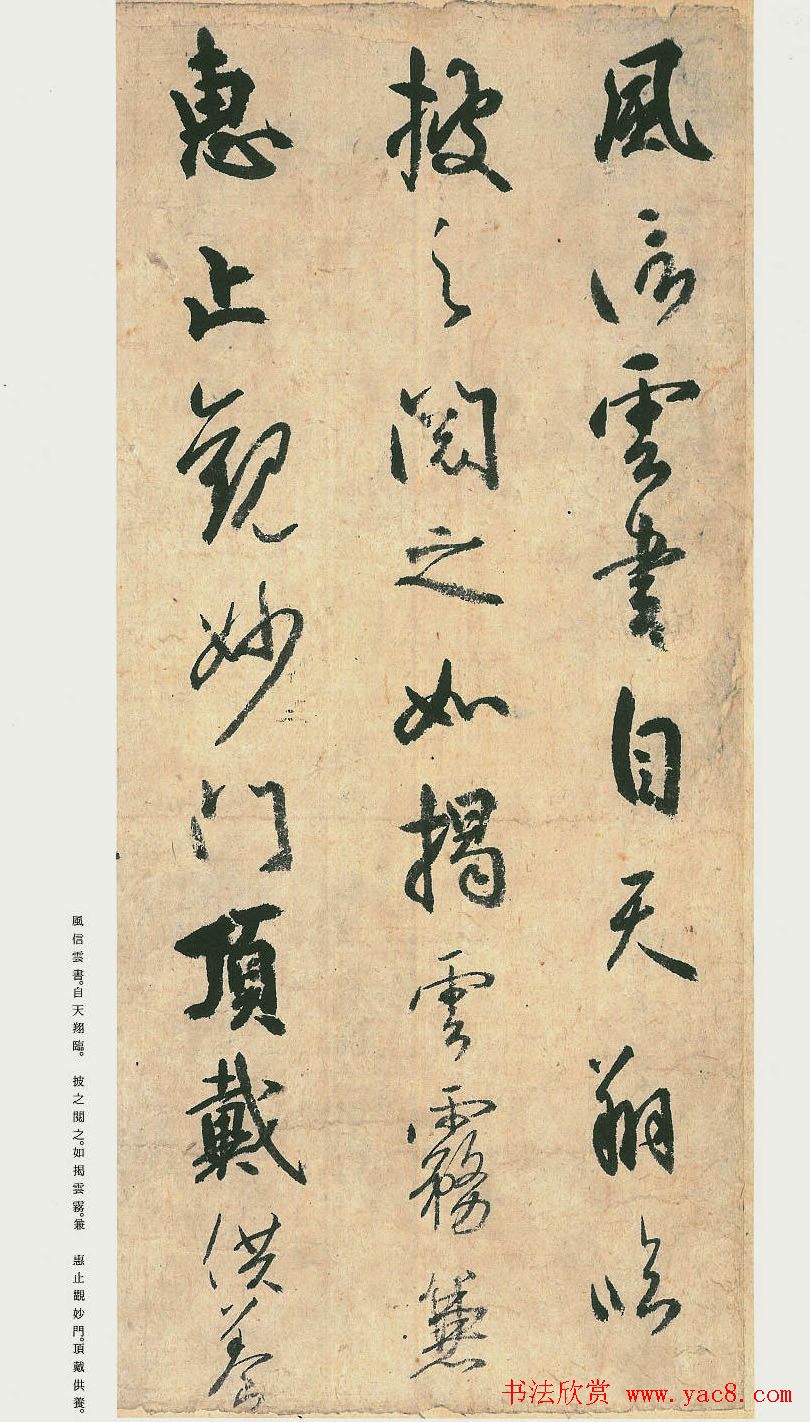 風信雲書自天翔臨
披之閱之如揭雲霧兼
惠止觀妙門頂戴供養
風信雲書。自天翔臨。 披之閱之。如揭雲霧。兼 惠止觀妙門。頂戴供養。
书法欣赏 www.yac8.com